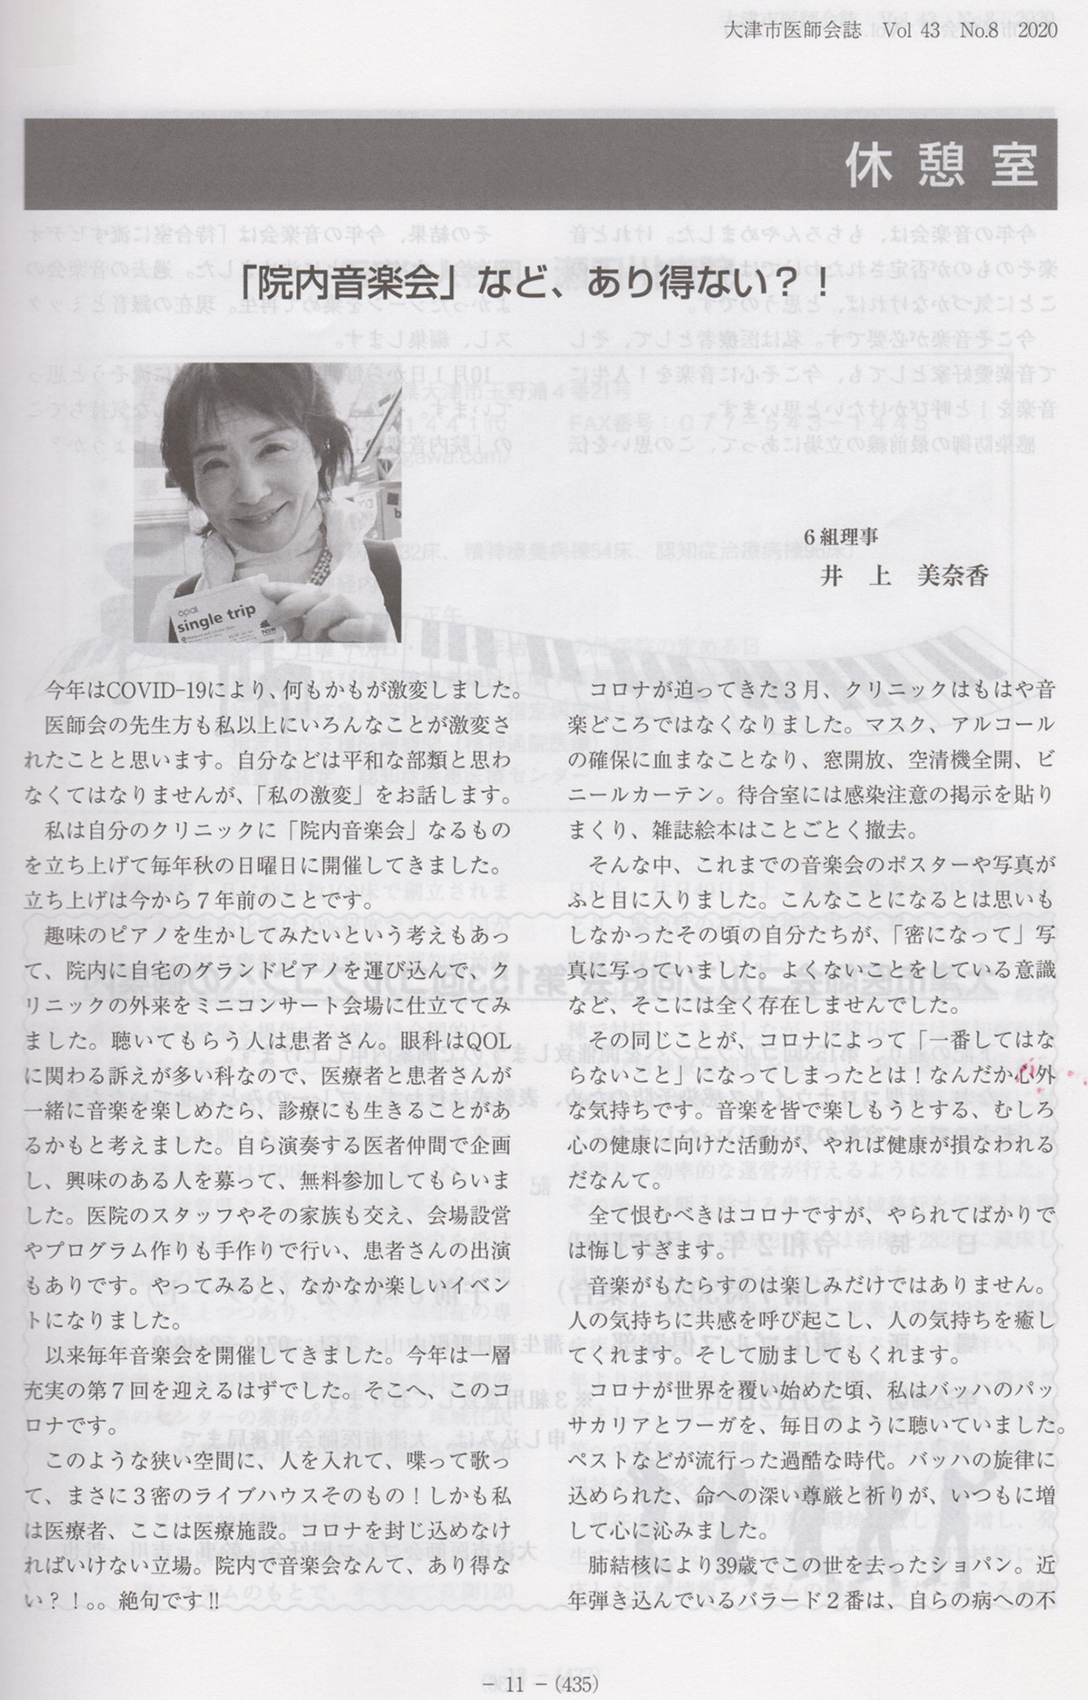 大津市医師会誌　Vol 43　No.8　2020
休憩室
「院内音楽会」など、あり得ない？！
opal
single trip
６組理事
井　上　美奈香
今年はCOVID-19により、何もかもが激変しました。
医師会の先生方も私以上にいろんなことが激変さ
れたことと思います。自分などは平和な部類と思わ
なくてはなりませんが、「私の激変」をお話します。
私は自分のクリニックに「院内音楽会」なるもの
を立ち上げて毎年秋の日曜日に開催してきました。
立ち上げは今から７年前のことです。
趣味のピアノを生かしてみたいという考えもあっ
て、院内に自宅のグランドピアノを運び込んで、ク
リニックの外来をミニコンサート会場に仕立ててみ
ました。聴いてもらう人は患者さん。眼科はQOL
に関わる訴えが多い科なので、医療者と患者さんが
一緒に音楽を楽しめたら、診療にも生きることがあ
るかもと考えました。自ら演奏する医者仲間で企画
し、興味のある人を募って、無料参加してもらいま
した。医院のスタッフやその家族も交え、会場設営
やプログラム作りも手作りで行い、患者さんの出演
もありです。やってみると、なかなか楽しいイベン
トになりました。
以来毎年音楽会を開催してきました。今年は一層
充実の第７回を迎えるはずでした。そこへ、このコ
ロナです。
このような狭い空間に、人を入れて、喋って歌っ
て、まさに３密のライブハウスそのもの！しかも私
は医療者、ここは医療施設。コロナを封じ込めなけ
ればいけない立場。院内で音楽会なんて、あり得な
い？！。。絶句です!!
コロナが迫ってきた３月、クリニックはもはや音
楽どころではなくなりました。マスク、アルコール
の確保に血まなことなり、窓開放、空清機全開、ビ
ニールカーテン。待合室には感染注意の掲示を貼り
まくり、雑誌絵本はことごとく撤去。
そんな中、これまでの音楽会のポスターや写真が
ふと目に入りました。こんなことになるとは思いも
しなかったその頃の自分たちが、「密になって」写
真に写っていました。よくないことをしている意識
など、そこには全く存在しませんでした。
その同じことが、コロナによって「一番してはな
らないこと」になってしまったとは！なんだか心外
な気持ちです。音楽を皆で楽しもうとする、むしろ
心の健康に向けた活動が、やれば健康が損なわれる
だなんて。
全て恨むべきはコロナですが、やられてばかりで
は悔しすぎます。
音楽がもたらすのは楽しみだけではありません。
人の気持ちに共感を呼び起こし、人の気持ちを癒し
てくれます。そして励ましてもくれます。
コロナが世界を覆い始めた頃、私はバッハのパッ
サカリアとフーガを、毎日のように聴いていました。
ペストなどが流行った過酷な時代。バッハの旋律に
込められた、命への深い尊厳と祈りが、いつもに増
して心に沁みました。
肺結核により39歳でこの世を去ったショパン。近
年弾き込んでいるバラード２番は、自らの病への不
－ 11 －(435)